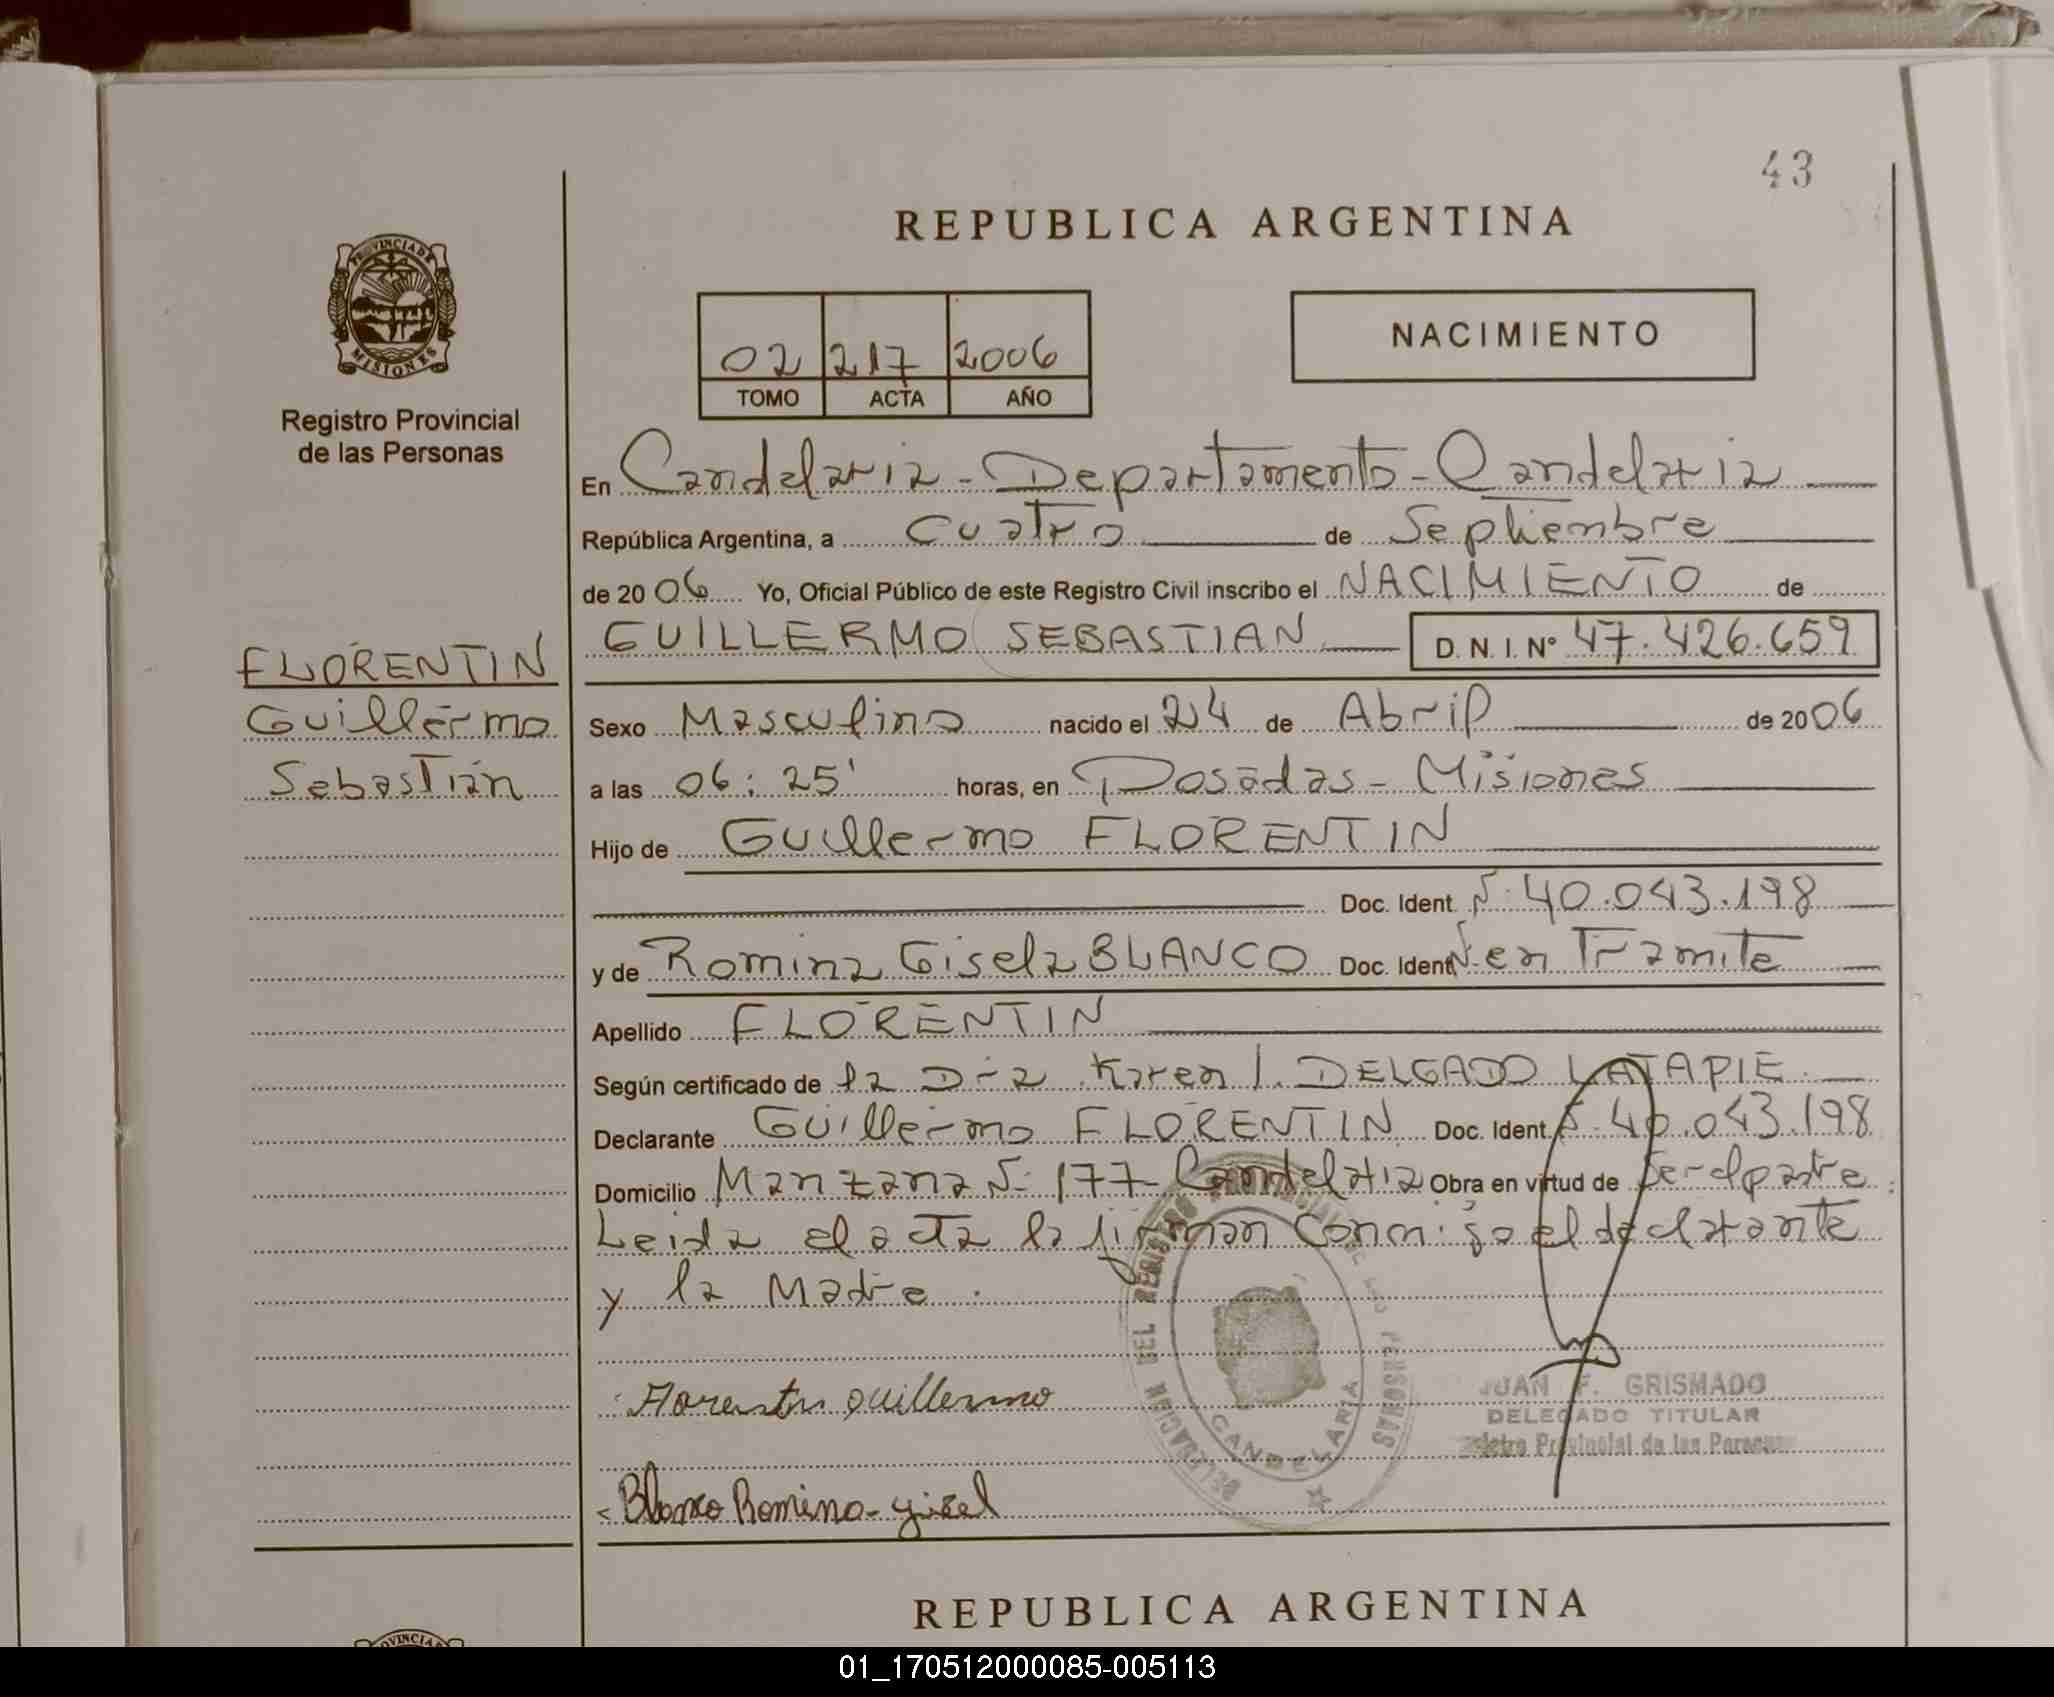 43
REPUBLICA ARGENTINA
PROVINCIA DE
MISIONES
Registro Provincial
de las Personas
02 217 2006
TOMO ACTA AÑO
NACIMIENTO
En Candelaria - Departamento - Candelaria
República Argentina, a Cuatro de Septiembre
de 2006 Yo, Oficial Público de este Registro Civil inscribo el NACIMIENTO de
GUILLERMO SEBASTIAN D.N.I. Nº 47.426.659
FLORENTIN
Guillermo
Sebastián
Sexo Masculino nacido el 24 de Abril de 2006
a las 06:25' horas, en Posadas - Misiones
Hijo de Guillermo FLORENTIN
Doc. Ident. Nº 40.043.198
y de Romina Gisela BLANCO Doc. Ident Nº en Tramite
Apellido FLORENTIN
Según certificado de la Dra Karen I. DELGADO LATAPIE
Declarante Guillermo FLORENTIN Doc. Ident. Nº 40.043.198
Domicilio Manzana Nº 177 - Candelaria Obra en virtud de Ser el padre.
Leida el acta la firman conmigo el declarante
y la Madre.
Florentin Guillermo
Blanco Romina gisel
DELEGACION DEL REGISTRO DE LAS PERSONAS
CANDELARIA
JUAN F. GRISMADO
DELEGADO TITULAR
Registro Provincial de las Personas
REPUBLICA ARGENTINA
01_170512000085-005113